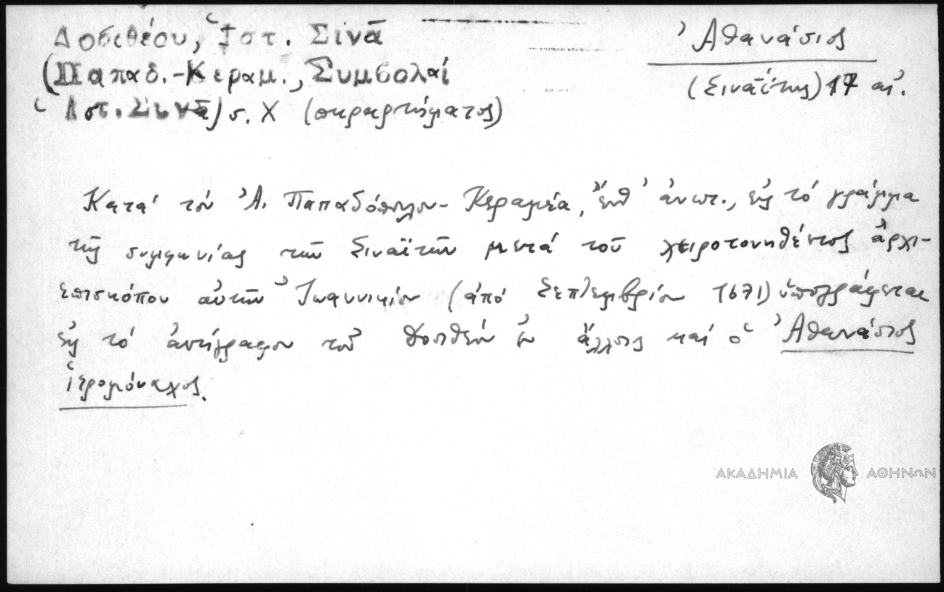 Δοσιθέου, Ἱστ. Σινᾶ
(Παπαδ.-Κεραμ., Συμβολαί
Ἱστ. Σινᾶ) σ. Χ (παραρτήματος)
Ἀθανάσιος
(Σιναΐτης) 17 αἰ.
Κατά τόν Ἀ. Παπαδόπουλον-Κεραμέα, ἔνθ' ἀνωτ., εἰς τό γράμμα
τῆς συμφωνίας τῶν Σιναϊτῶν μετά τοῦ χειροτονηθέντος ἀρχι-
επισκόπου αὐτῶν Ἰωαννικίου (ἀπό Σεπτεμβρίου 1671) ὑπογράφεται
εἰς τό ἀντίγραφον τοῦ Δοσιθέου ἐν ἄλλοις καί ὁ Ἀθανάσιος
ἱερομόναχος.
ΑΚΑΔΗΜΙΑ ΑΘΗΝΩΝ